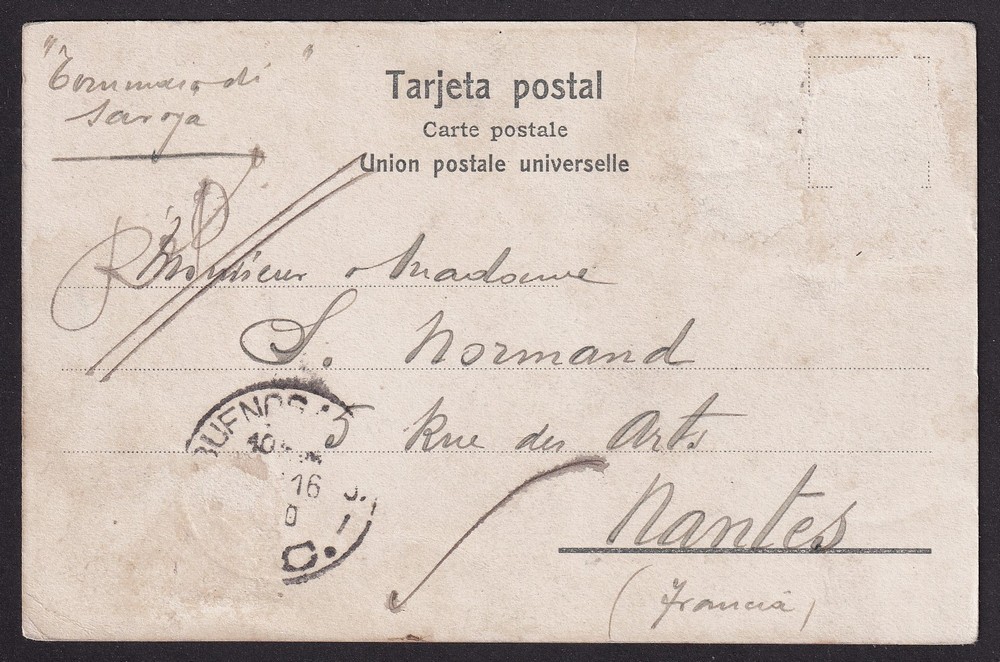 "Tommaso di
Savoya"
Tarjeta postal
Carte postale
Union postale universelle
Monsieur & Madame
S. Normand
5 Rue des Arts
Nantes
(Francia)
BUENOS A
10
16
C.